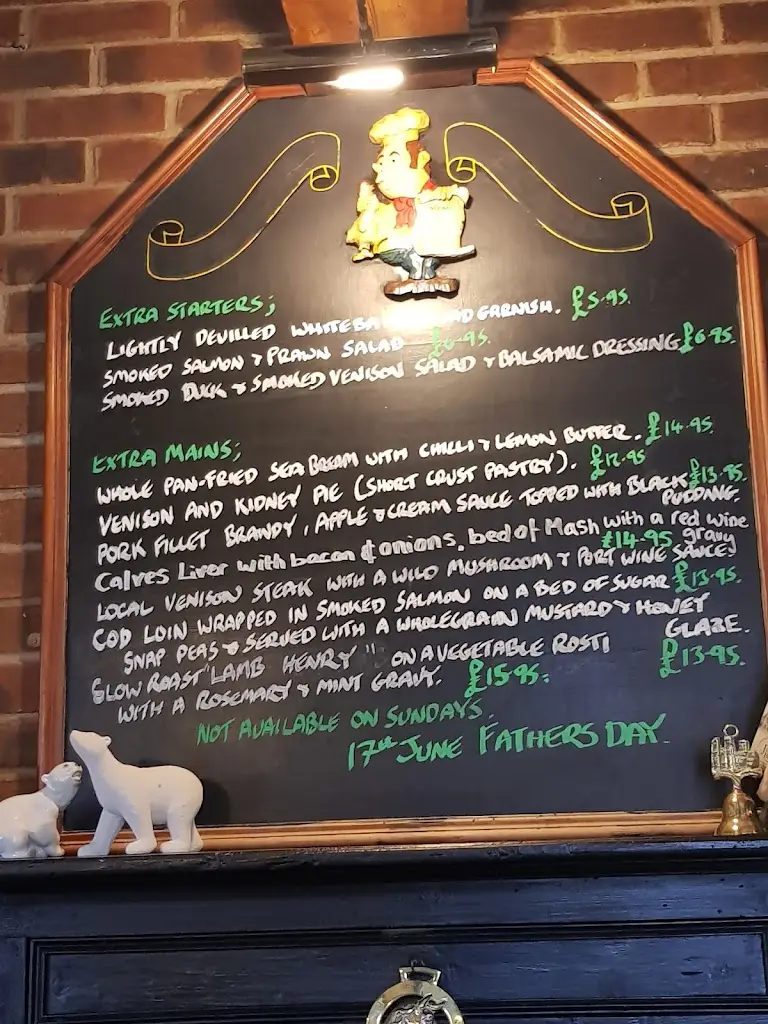 EXTRA STARTERS;
LIGHTLY DEVILLED WHITEBA GARNISH. £5.95.
SMOKED SALMON & PRAWN SALAD £6.95.
SMOKED DUCK & SMOKED VENISON SALAD & BALSAMIC DRESSING £6.95.
EXTRA MAINS;
WHOLE PAN-FRIED SEA BREAM WITH CHILLI & LEMON BUTTER. £14.95.
VENISON AND KIDNEY PIE (SHORT CRUST PASTRY). £12.95
PORK FILLET BRANDY, APPLE & CREAM SAUCE TOPPED WITH BLACK £13.95.
PUDDING.
Calves Liver with bacon & onions, bed of Mash with a red wine
£14.95 gravy
LOCAL VENISON STEAK WITH A WILD MUSHROOM & PORT WINE SAUCE
COD LOIN WRAPPED IN SMOKED SALMON ON A BED OF SUGAR £13.95.
SNAP PEAS & SERVED WITH A WHOLEGRAIN MUSTARD & HONEY
GLAZE.
SLOW ROAST "LAMB HENRY" ON A VEGETABLE ROSTI £13.95.
WITH A ROSEMARY & MINT GRAVY. £15.95.
NOT AVAILABLE ON SUNDAYS.
17TH JUNE FATHERS DAY